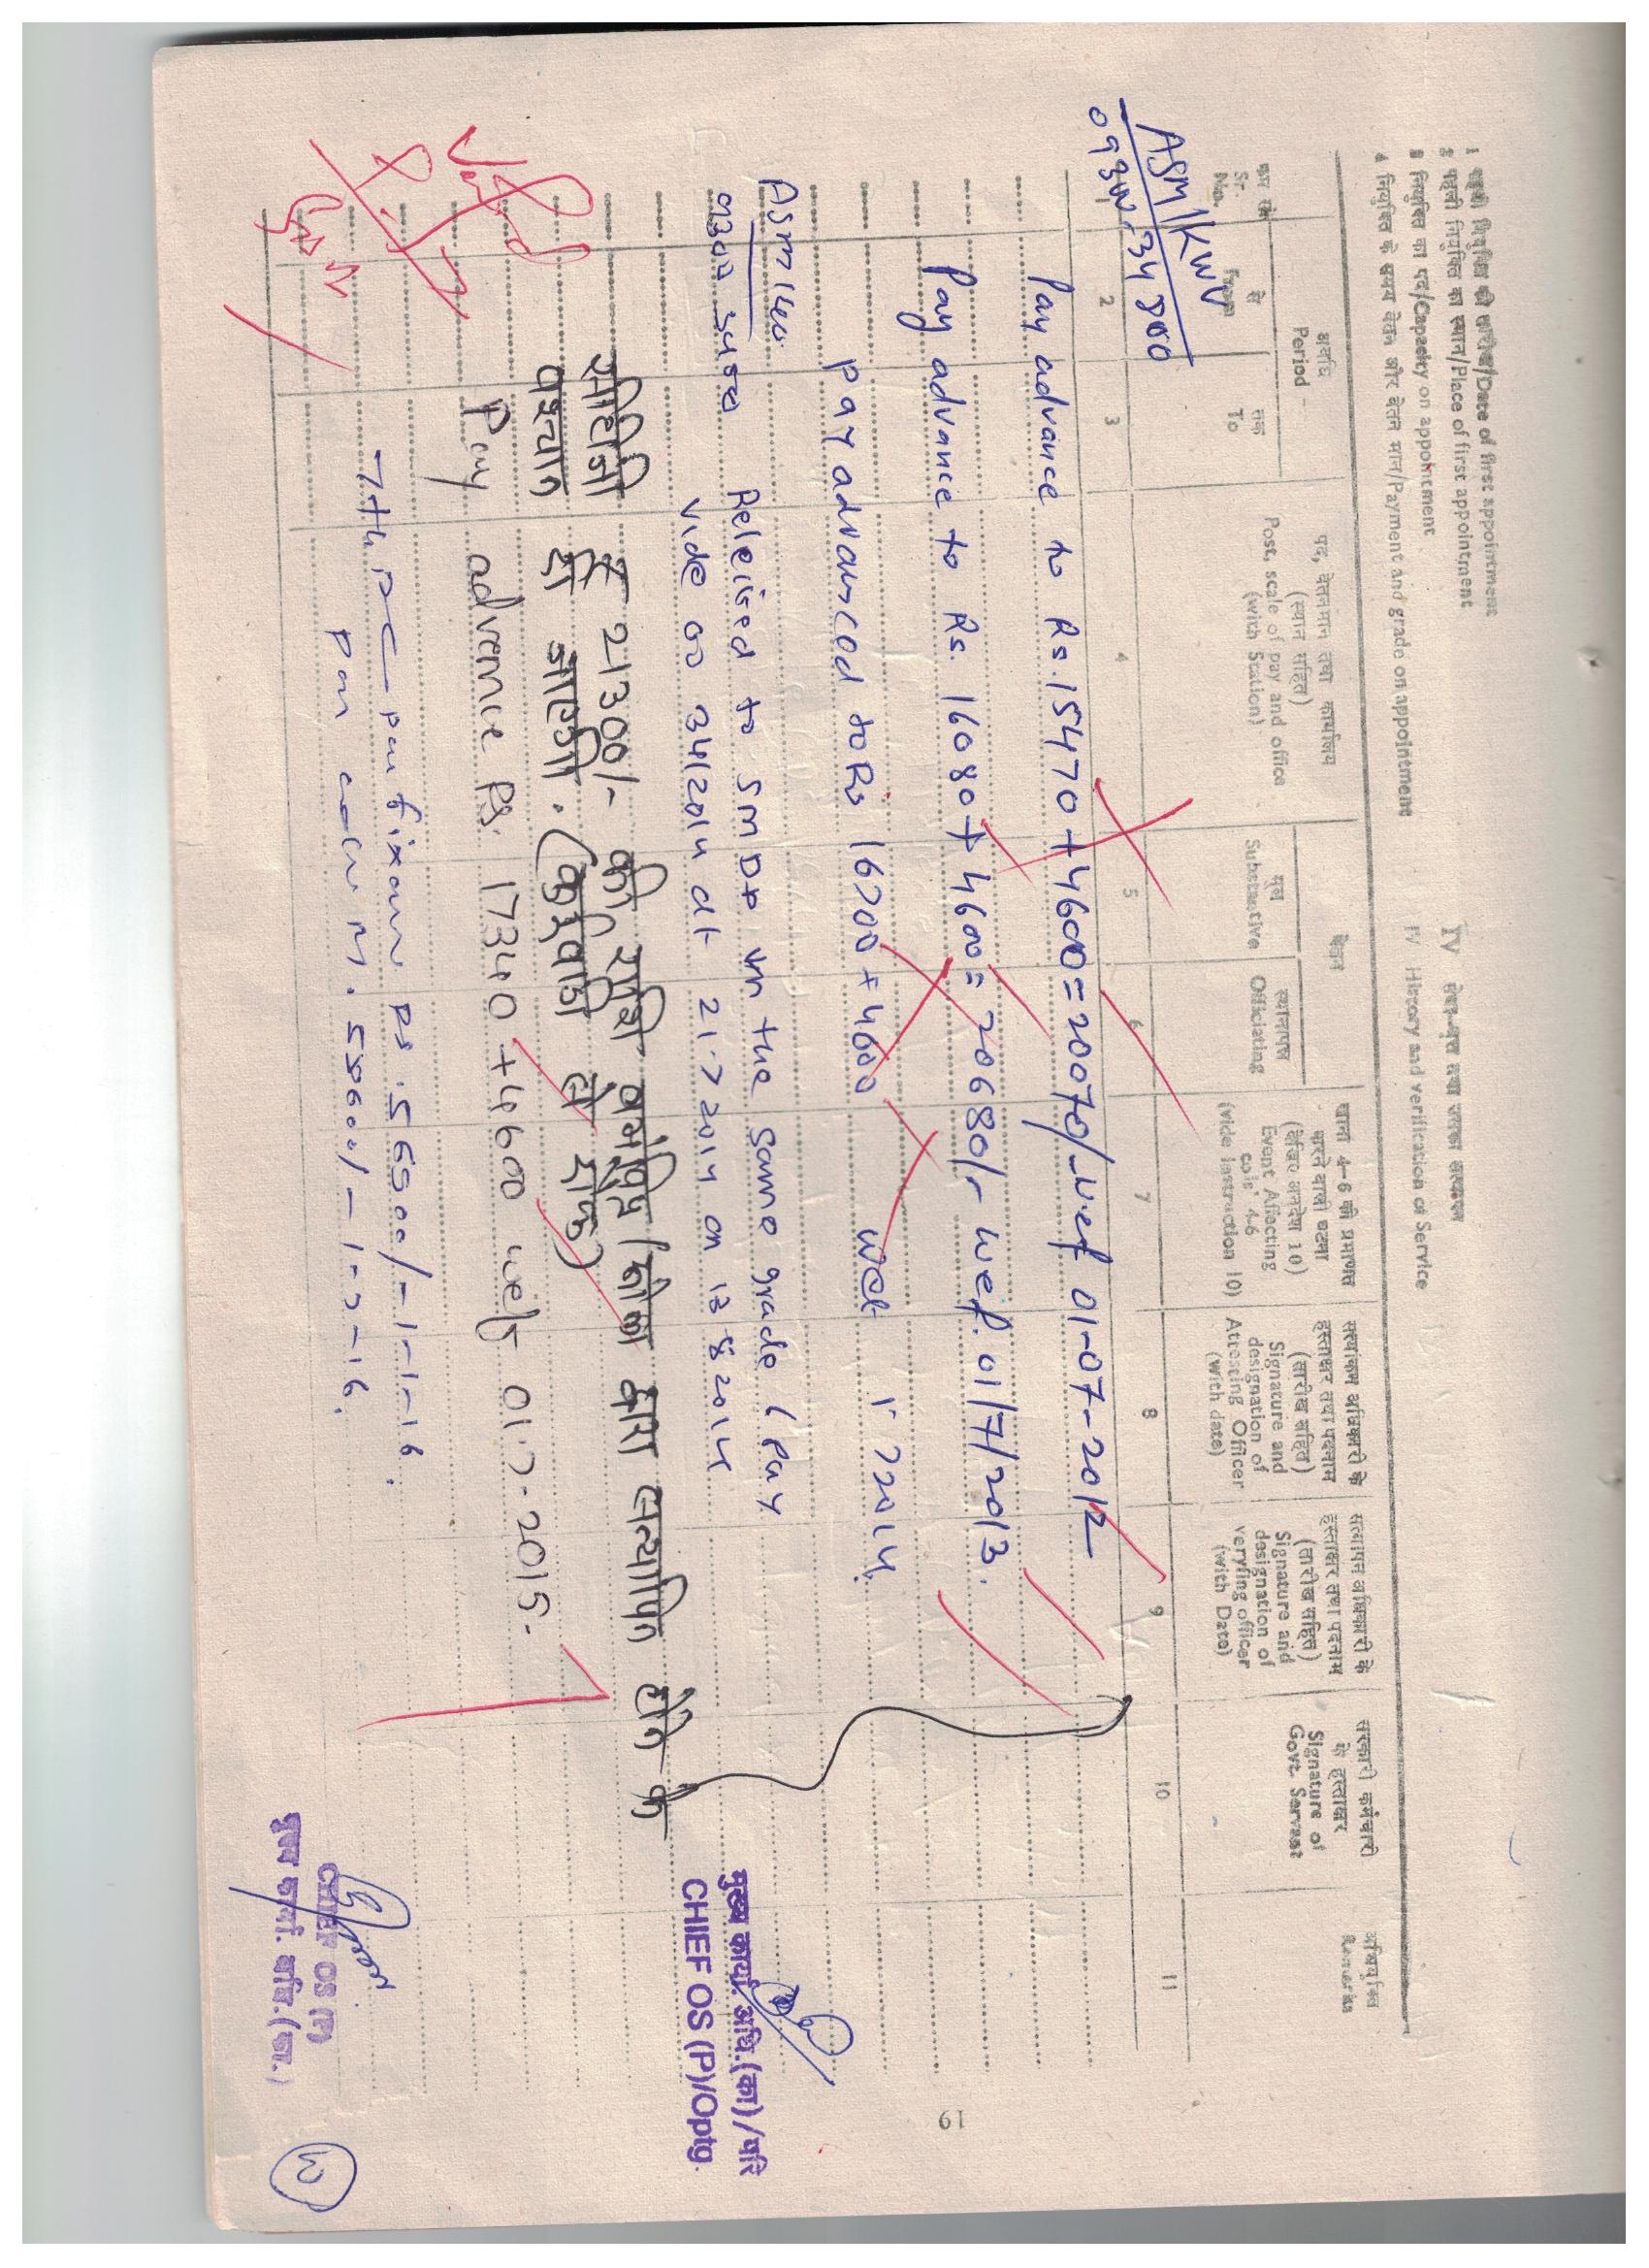 1 पहली नियुक्ति की तारीख/Date of first appointment
2 पहली नियुक्ति का स्थान/Place of first appointment
3 नियुक्ति का पद/Capacity on appointment
4 नियुक्ति के समय वेतन और वेतन मान/Payment and grade on appointment
IV सेवा-वृत्त तथा उसका सत्यापन
IV History and verification of Service
क्रम सं० Sr. No.
अवधि Period
से From
तक To
पद, वेतनमान तथा कार्यालय (स्थान सहित) Post, scale of pay and office (with Station)
वेतन
मूल Substantive
स्थानापन्न Officiating
खाना 4-6 को प्रभावित करने वाली घटना (देखिए अनुदेश 10) Event Affecting cols' 4-6 (vide instruction 10)
सत्यांकन अधिकारी के हस्ताक्षर तथा पदनाम (तारीख सहित) Signature and designation of Attesting Officer (with date)
सत्यापन अधिकारी के हस्ताक्षर तथा पदनाम (तारीख सहित) Signature and designation of verying officer (with Date)
सरकारी कर्मचारी के हस्ताक्षर Signature of Govt. Servant
अभियुक्ति Remarks
1 2 3 4 5 6 7 8 9 10 11
ASM/KWV
09300-34800
Pay advance to Rs.15470+4600=20070/-wef 01-07-2012
Pay advance to Rs. 16080+4600=20680/- wef. 01/7/2013.
Pay advanced to Rs 16700+4600 wef 1.7.2014.
ASM
Releived to SMDP in the same grade / pay
vide oo 341/2014 dt 21.7.2014 on 13.8.2014
21300/- की राशि द्वारा सत्यापित होने के
पश्चात दी जाएगी.
Pay advence Rs. 17340+4600 wef 01.7.2015.
7th PC pay fixan Rs. 56500/- 1-1-16.
1-7-16.
मुख्य कार्या. अधि.(का)/परि
CHIEF OS (P)/Optg.
CHIEF OS (P)
मुख्य कार्या. अधि.(का.)
19